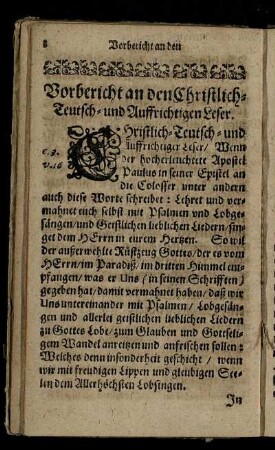 8 Vorbericht an den
Vorbericht an den Christlich-
Teutsch- und Auffrichtigen Leser.
CHristlich-Teutsch- und
Auffrichtiger Leser / Wenn
c. 3.
der hocherleuchtete Apostel
v. 16
Paulus in seiner Epistel an
die Colosser unter andern
auch diese Worte schreibet: Lehret und ver-
mahnet euch selbst mit Psalmen und Lobge-
sängen / und Geistlichen lieblichen Liedern / sin-
get dem HErrn in eurem Hertzen. So wil
der außerwehlte Rüstzeug Gottes / der es vom
HErrn / im Paradiß / im dritten Himmel ent-
pfangen / was er Uns / in seinen Schrifften /
gegeben hat / damit vermahnet haben / daß wir
Uns untereinander mit Psalmen / Lobgesän-
gen und allerley geistlichen lieblichen Liedern
zu Gottes Lobe / zum Glauben und Gottseli-
gem Wandel anreitzen und anfrischen sollen:
Welches denn insonderheit geschicht / wenn
wir mit freudigen Lippen und gleubigen See-
len dem Allerhöchsten Lobsingen.
In